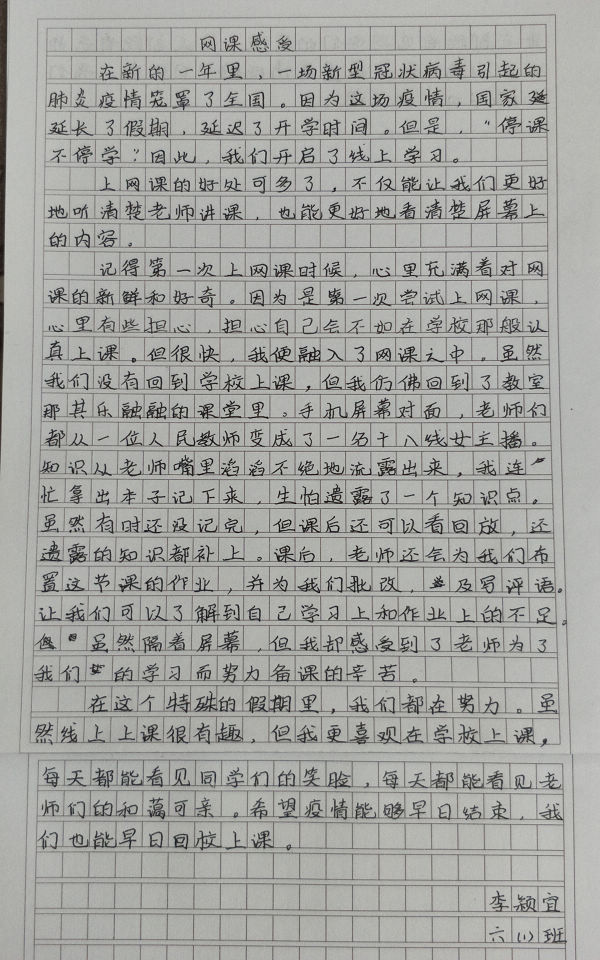 网课感受
在新的一年里，一场新型冠状病毒引起的
肺炎疫情笼罩了全国。因为这场疫情，国家延
延长了假期，延迟了开学时间。但是，“停课
不停学”因此，我们开启了线上学习。
上网课的好处可多了，不仅能让我们更好
地听清楚老师讲课，也能更好地看清楚屏幕上
的内容。
记得第一次上网课时候，心里充满着对网
课的新鲜和好奇。因为是第一次尝试上网课，
心里有些担心，担心自己会不如在学校那般认
真上课。但很快，我便融入了网课之中。虽然
我们没有回到学校上课，但我仿佛回到了教室
那其乐融融的课堂里。手机屏幕对面，老师们
都从一位人民教师变成了一名十八线女主播。
知识从老师嘴里滔滔不绝地流露出来，我连
忙拿出本子记下来，生怕遗露了一个知识点。
虽然有时还没记完，但课后还可以看回放，还
遗露的知识都补上。课后，老师还会为我们布
置这节课的作业，并为我们批改，及写评语。
让我们可以了解到自己学习上和作业上的不足。
虽然隔着屏幕，但我却感受到了老师为了
我们的学习而努力备课的辛苦。
在这个特殊的假期里，我们都在努力。虽
然线上上课很有趣，但我更喜观在学校上课，
每天都能看见同学们的笑脸，每天都能看见老
师们的和蔼可亲。希望疫情能够早日结束，我
们也能早日回校上课。
李颖宜
六（1）班